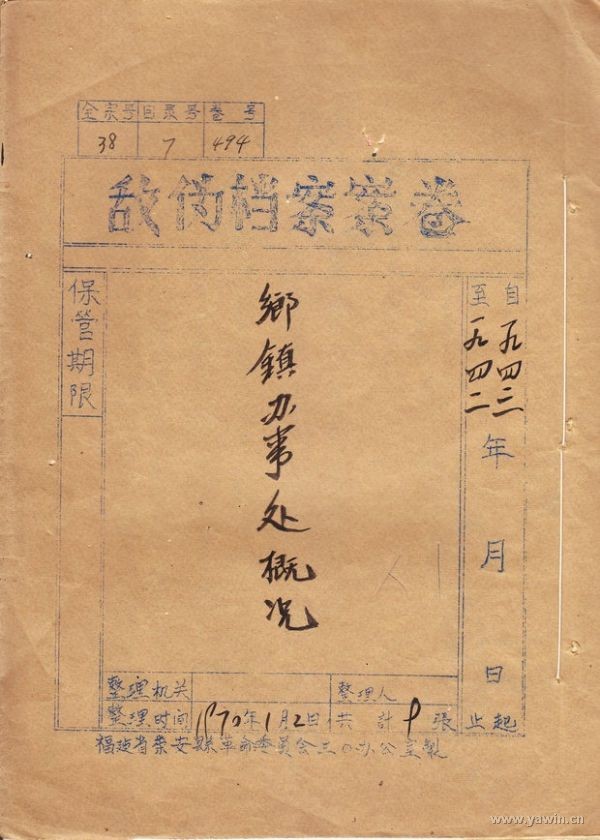 全宗号 目录号 卷号
38 7 494
敌伪档案案卷
保管期限
鄉鎮办事处概况
自一九四二
至一九四二
年月日
起
止
整理机关
整理人
整理时间 1970年1月2日 共計 9 張
福建省崇安縣革命委員会三〇办公室製
www.yawin.cn